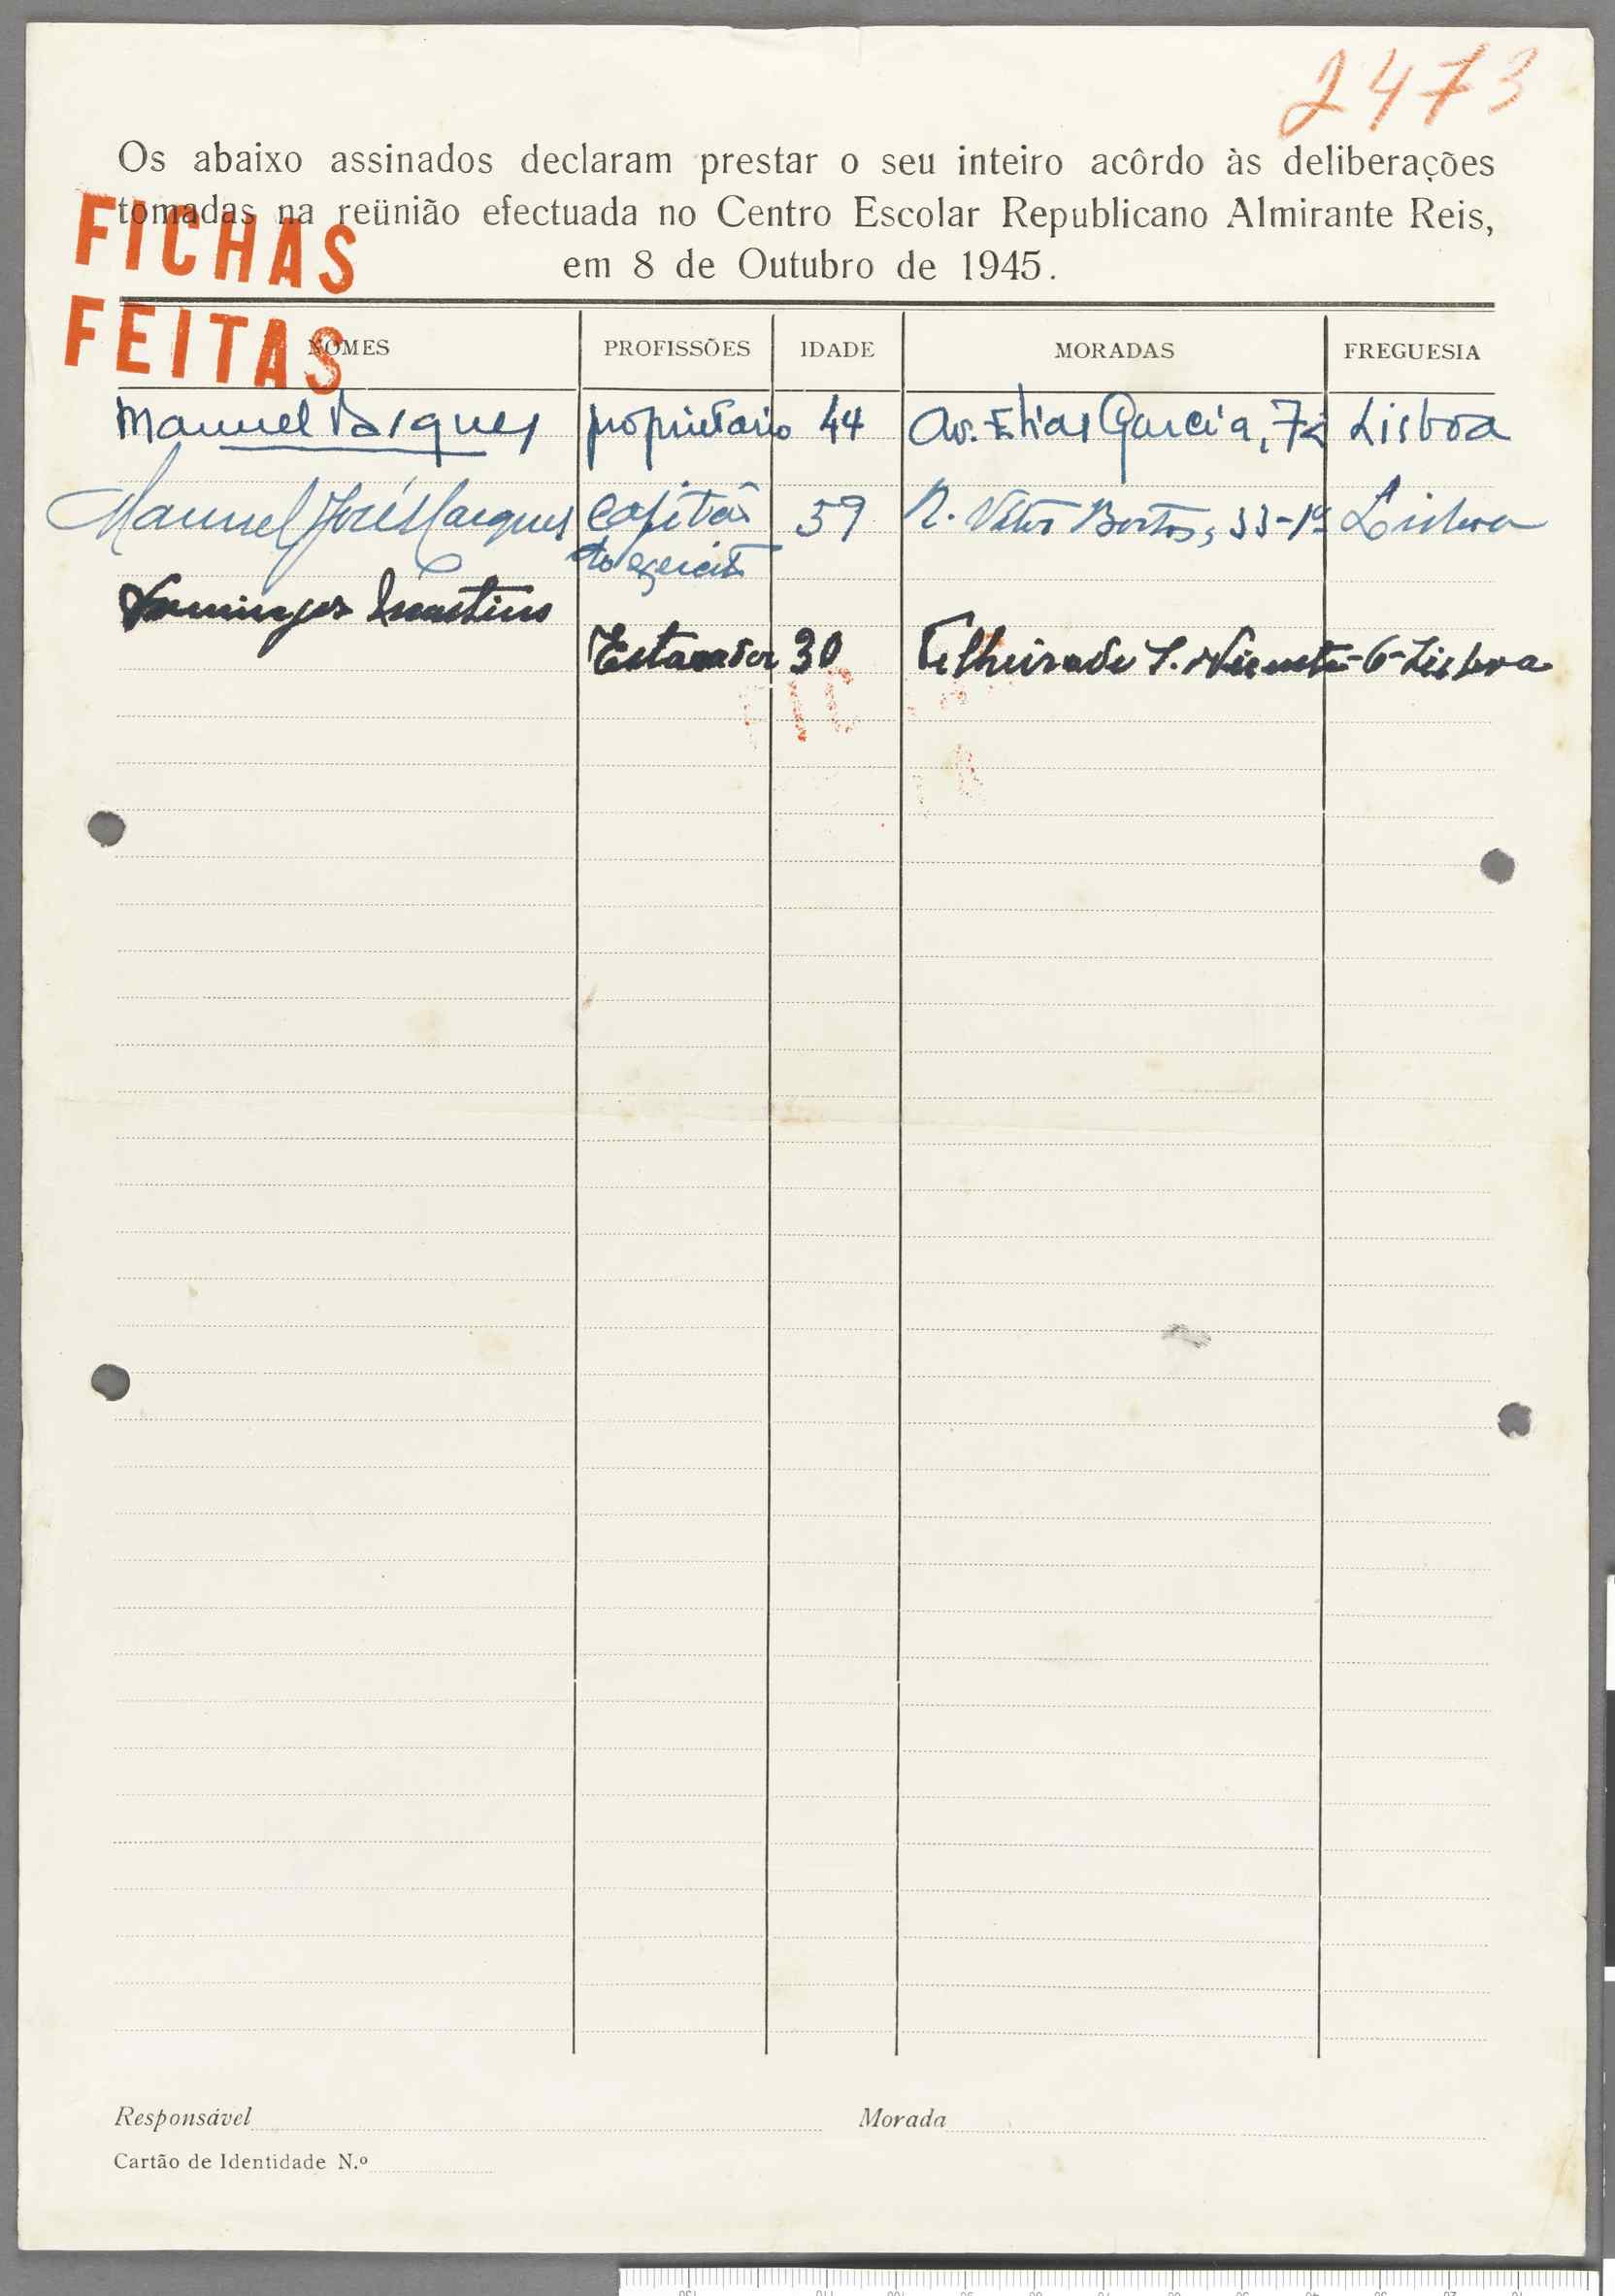 2473
Os abaixo assinados declaram prestar o seu inteiro acôrdo às deliberações
tomadas na reünião efectuada no Centro Escolar Republicano Almirante Reis,
em 8 de Outubro de 1945.
FICHAS
FEITAS
NOMES PROFISSÕES IDADE MORADAS FREGUESIA
Manuel Vasques proprietario 44 Av. Elias Garcia, 72 Lisboa
Manuel José Marques Capitão 59 R. Vitor Bastos, 33-1º Lisboa
do exercito
Domingos
Estucador 30 Telheiro de S. Vicente-6-Lisboa
FIC
Responsável Morada
Cartão de Identidade N.º